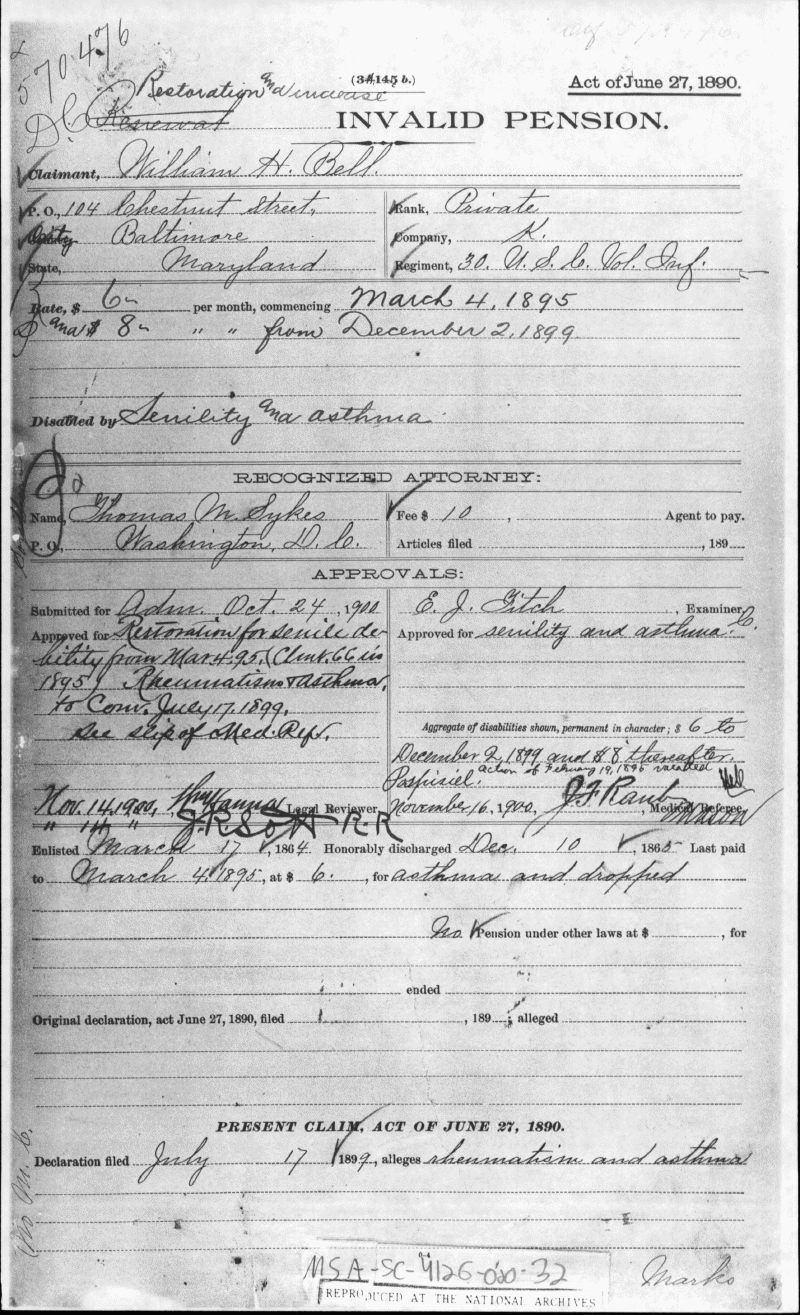 570476
(3-145 b.)
Act of June 27, 1890.
Restoration and increase
D.C. Renewal
INVALID PENSION.
Claimant, William H. Bell.
P. O., 104 Chestnut Street,
Rank, Private
City Baltimore
Company, K.
State, Maryland
Regiment, 30. U. S. C. Vol. Inf.
Rate, $ 6- per month, commencing March 4, 1895
and $ 8- " " from December 2, 1899.
Disabled by Senility and asthma
RECOGNIZED ATTORNEY:
Name, Thomas M. Sykes
Fee $ 10 , Agent to pay.
P. O., Washington, D. C.
Articles filed , 189
APPROVALS:
Submitted for Adm. Oct. 24, 1900
E. J. Fitch , Examiner.
Approved for Restoration for senile de-
bility from Mar 4. 95. (Clmt. 66 in
1895) Rheumatism & asthma,
to Com. July 17. 1899.
See slip of Med. Ref.
Approved for senility and asthma.
Aggregate of disabilities shown, permanent in character; $ 6 to
December 2, 1899 and $8 thereafter.
action of February 19, 1895 vacated
Pospisiel.
Nov. 14, 1900, Wm Hanna Legal Reviewer.
November 16, 1900, J F Raub , Medical Referee.
J.R. Scott R-R
Enlisted March 17, 1864 Honorably discharged Dec. 10, 1865 Last paid
to March 4. 1895, at $ 6. , for asthma and dropped
No Pension under other laws at $ , for
ended
Original declaration, act June 27, 1890, filed , 189 ; alleged
PRESENT CLAIM, ACT OF JUNE 27, 1890.
Declaration filed July 17 1899, alleges rheumatism and asthma
No M. C.
MSA-SC-4126-020-32
REPRODUCED AT THE NATIONAL ARCHIVES
Marks